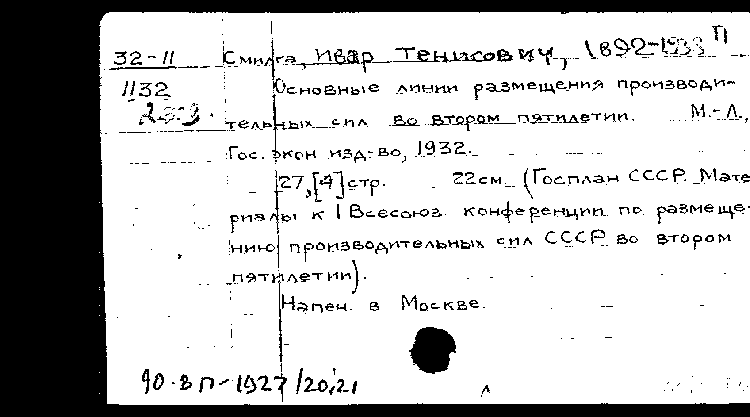 32-11 Смилга, Ивар Тенисович, 1892-1938 П
1132 Основные линии размещения производи-
тельных сил во втором пятилетии. М.-Л.,
Гос. экон изд-во, 1932.
27,[4]стр. 22см (Госплан СССР. Мате
риалы к I Всесоюз. конференции по размеще-
нию производительных сил СССР во втором
пятилетии).
Напеч. в Москве.
90-ВП-1927/20,21